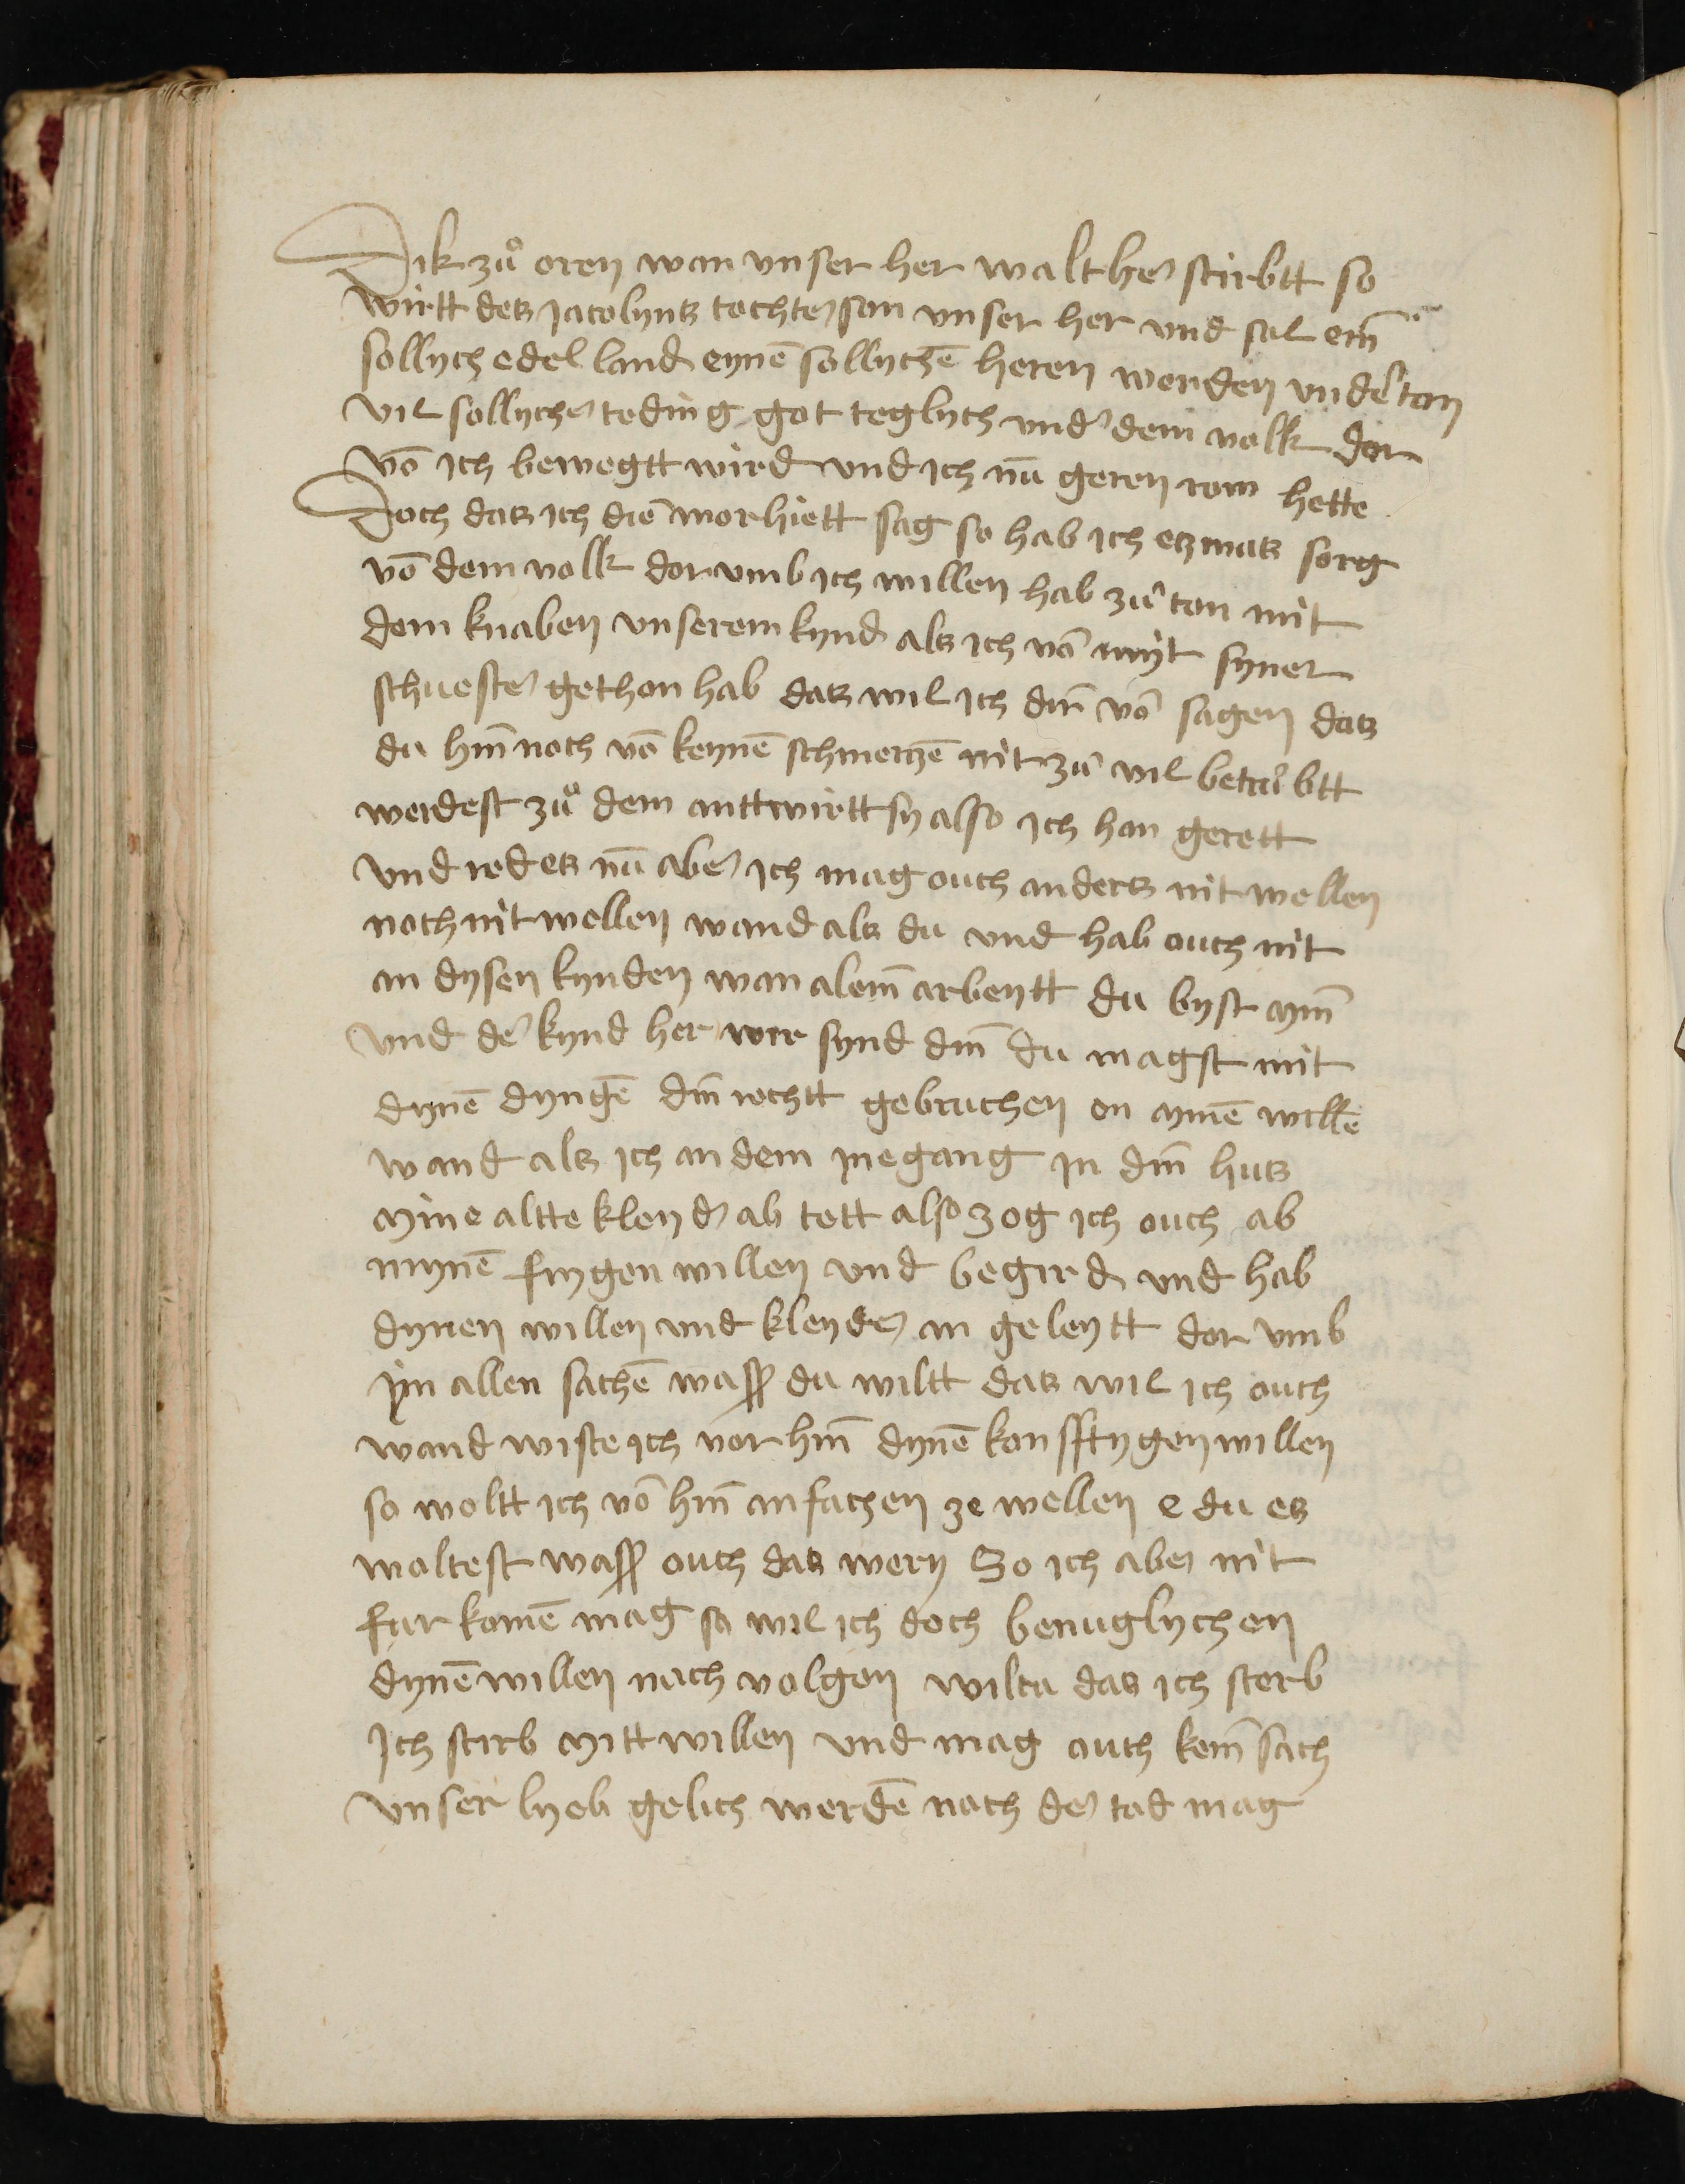 Dik zů oren wan vnser her walther stirbtt so
wirtt des jacolyns tochter son vnser her vnd sal ein̄
sollych edel land eynē sollychē heren werden vnder tan
vil sollycher teding gat teglych vnder dem volk dar
vō ich bewegtt wird vnd ich nū geren row hette
Doch das ich die worhiett sag so hab ich etzwas sorg
vō dem volk dorvmb ich willen hab zů ton mit
dem knaben vnserem kynd als ich vō myt syner
schuester gethon hab das wil ich dir vō sagen das
du hin̄noch vō keynē schmertzē nit zů vil betrůbtt
werdest zů dem anttwirtt sy also ich han gerett
vnd red es nū aber ich mag ouch anders nit wellen
noch nit wellen wand als du vnd hab ouch nit
an dysen kynden wan alein̄ arbeytt du byst myn̄
vnd der kynd her wir synd din̄ du magst mit
dynē dyngē din̄ rechtt gebruchen on mynē willē
wand als ich an dem jnegang jn din̄ hus
mine altte kleyder ab tett also zog ich ouch ab
mynē frygen willen vnd begird vnd hab
dynen willen vnd kleyder an geleytt dor vmb
jn allen sachē wass du wiltt das wil ich ouch
wand wiste ich vor hin̄ dynē konfftygen willen
so woltt ich vō hin̄ anfachen ze wellen e du es
woltest wass ouch das wery So ich aber nit
furkomē mag so wil ich doch benuglychen
dynē willen nach volgen wiltu das ich sterb
Ich stirb mitt willen vnd mag ouch kein̄ sach
vnser lyeb gelich werdē noch der tod mag